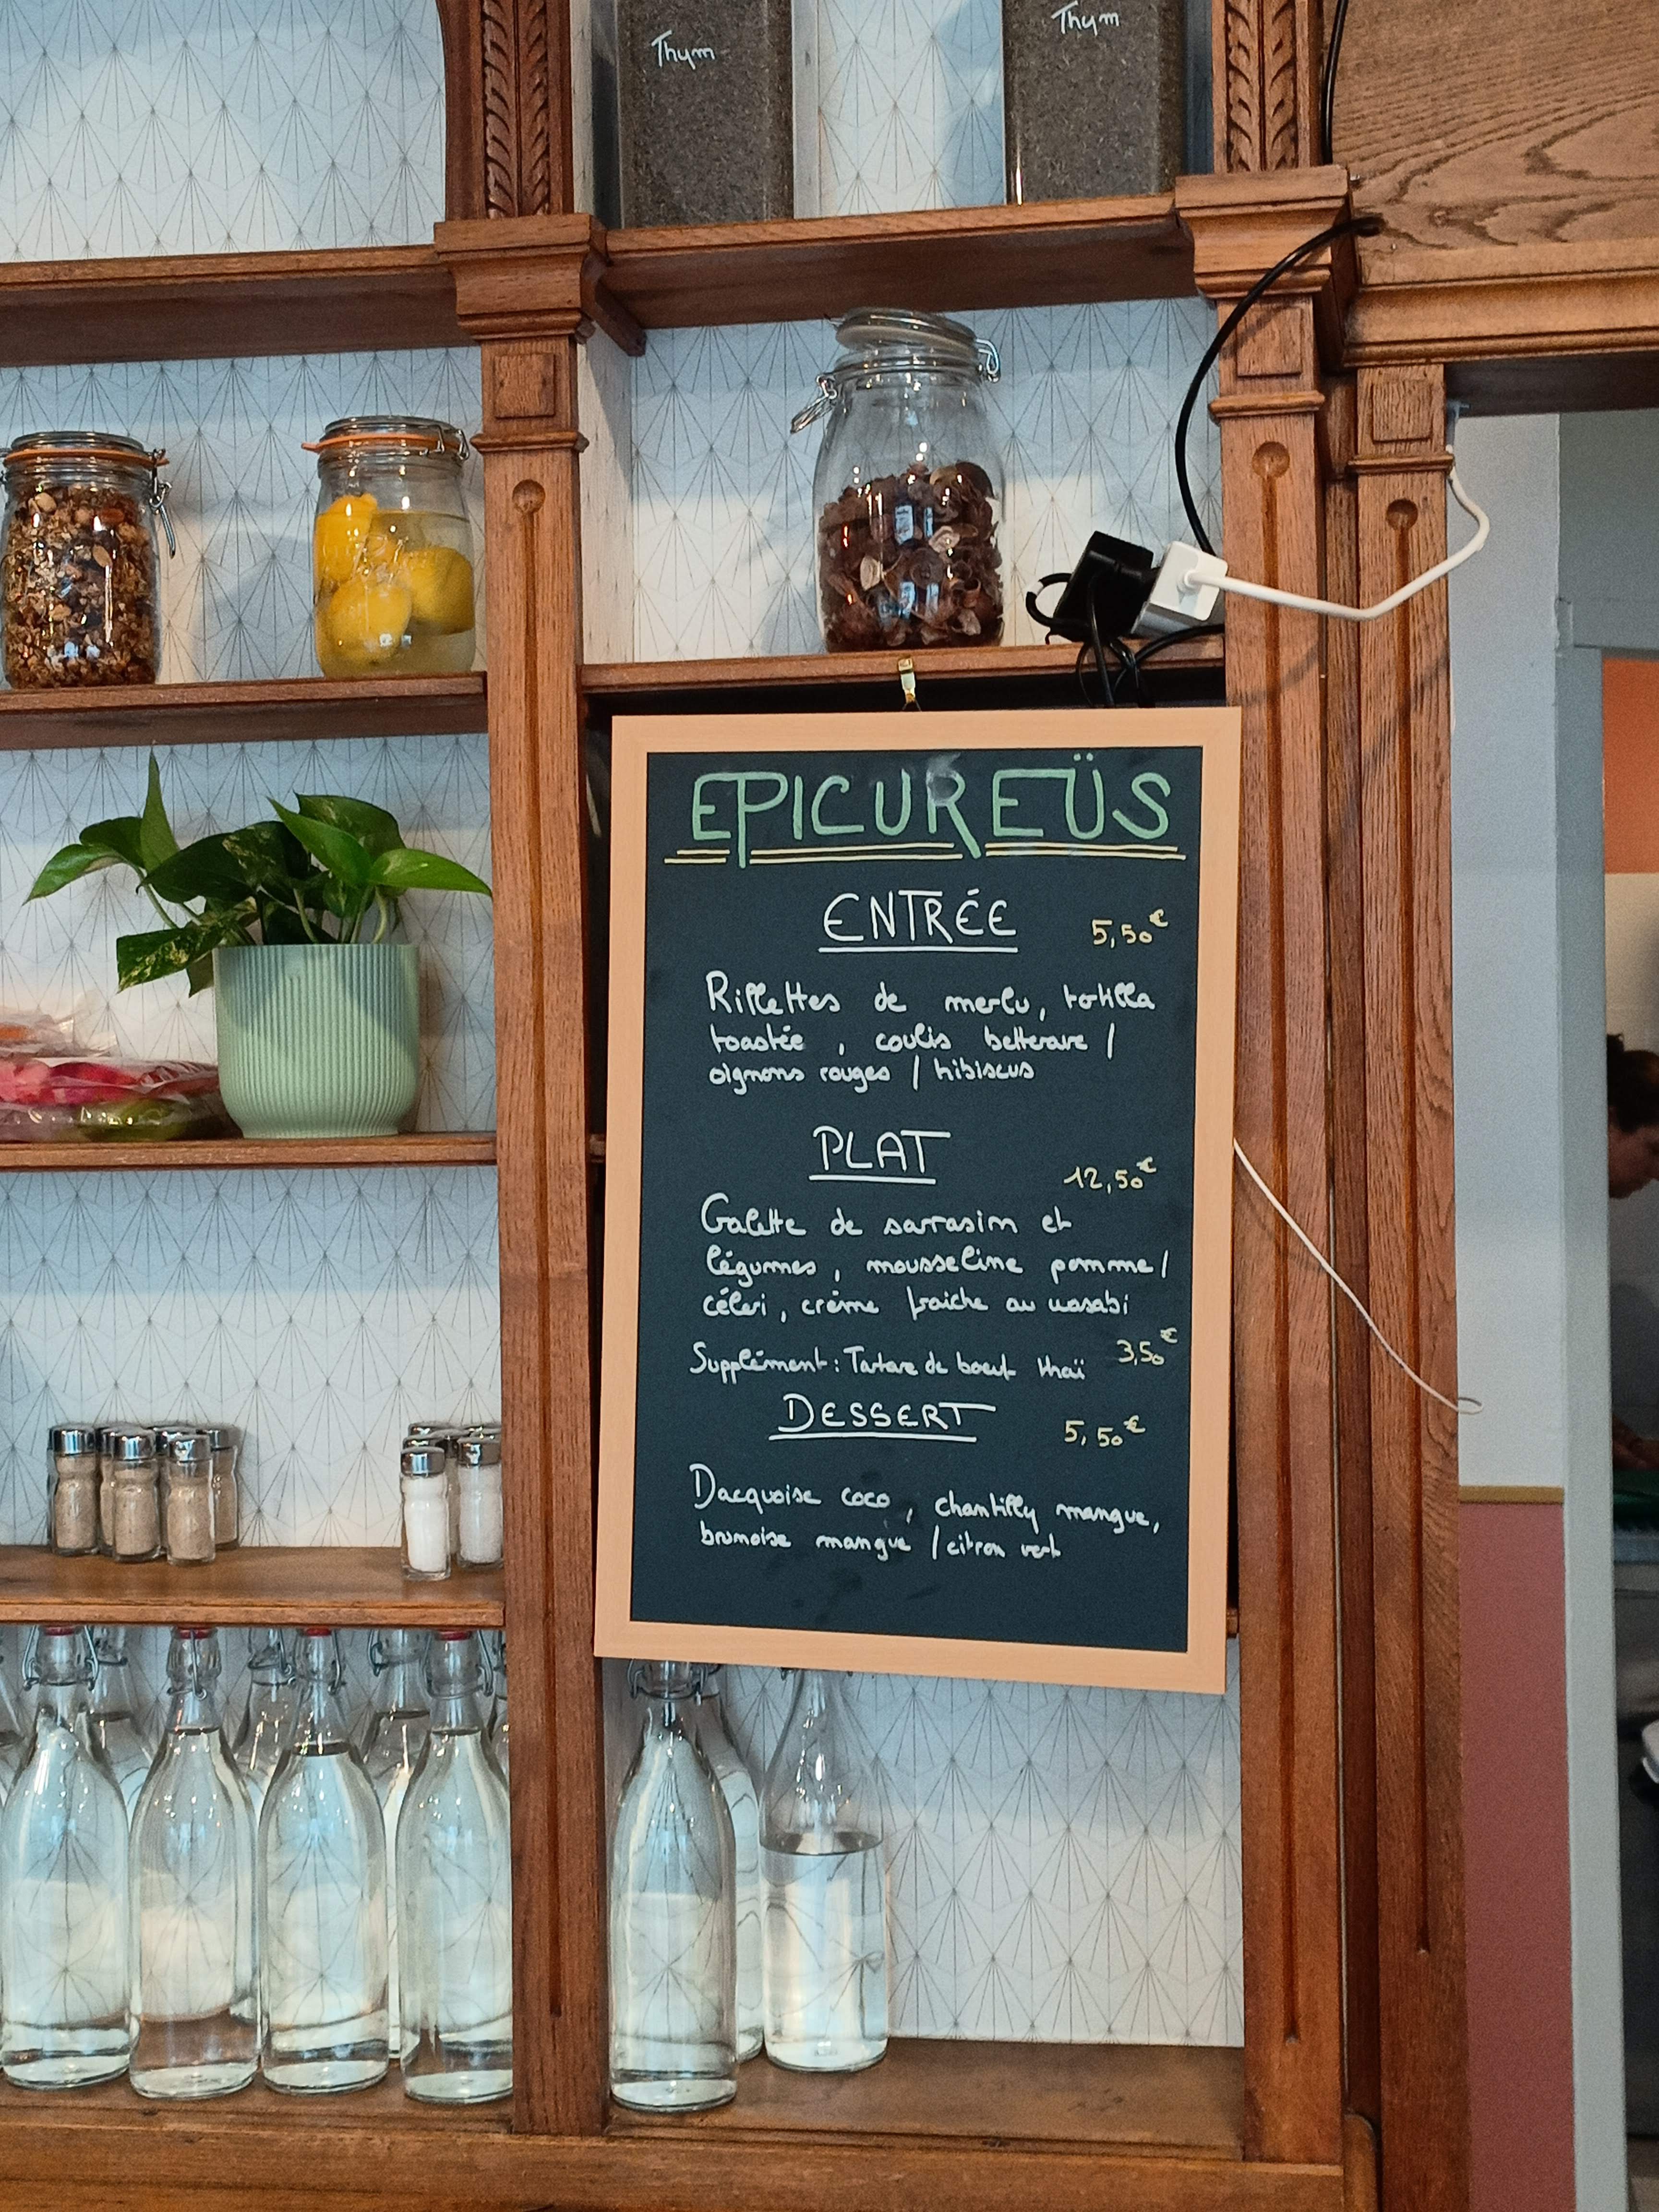 Thym
Thym
EPICUREÜS
ENTRÉE 5,50€
Rillettes de merlu, tortilla
toastée, coulis betterave /
oignons rouges / hibiscus
PLAT 12,50€
Galette de sarrasin et
légumes, mousseline pomme /
céleri, crème fraiche au wasabi
Supplément : Tartare de boeuf thaï 3,50€
DESSERT 5,50€
Dacquoise coco, chantilly mangue,
brunoise mangue / citron vert